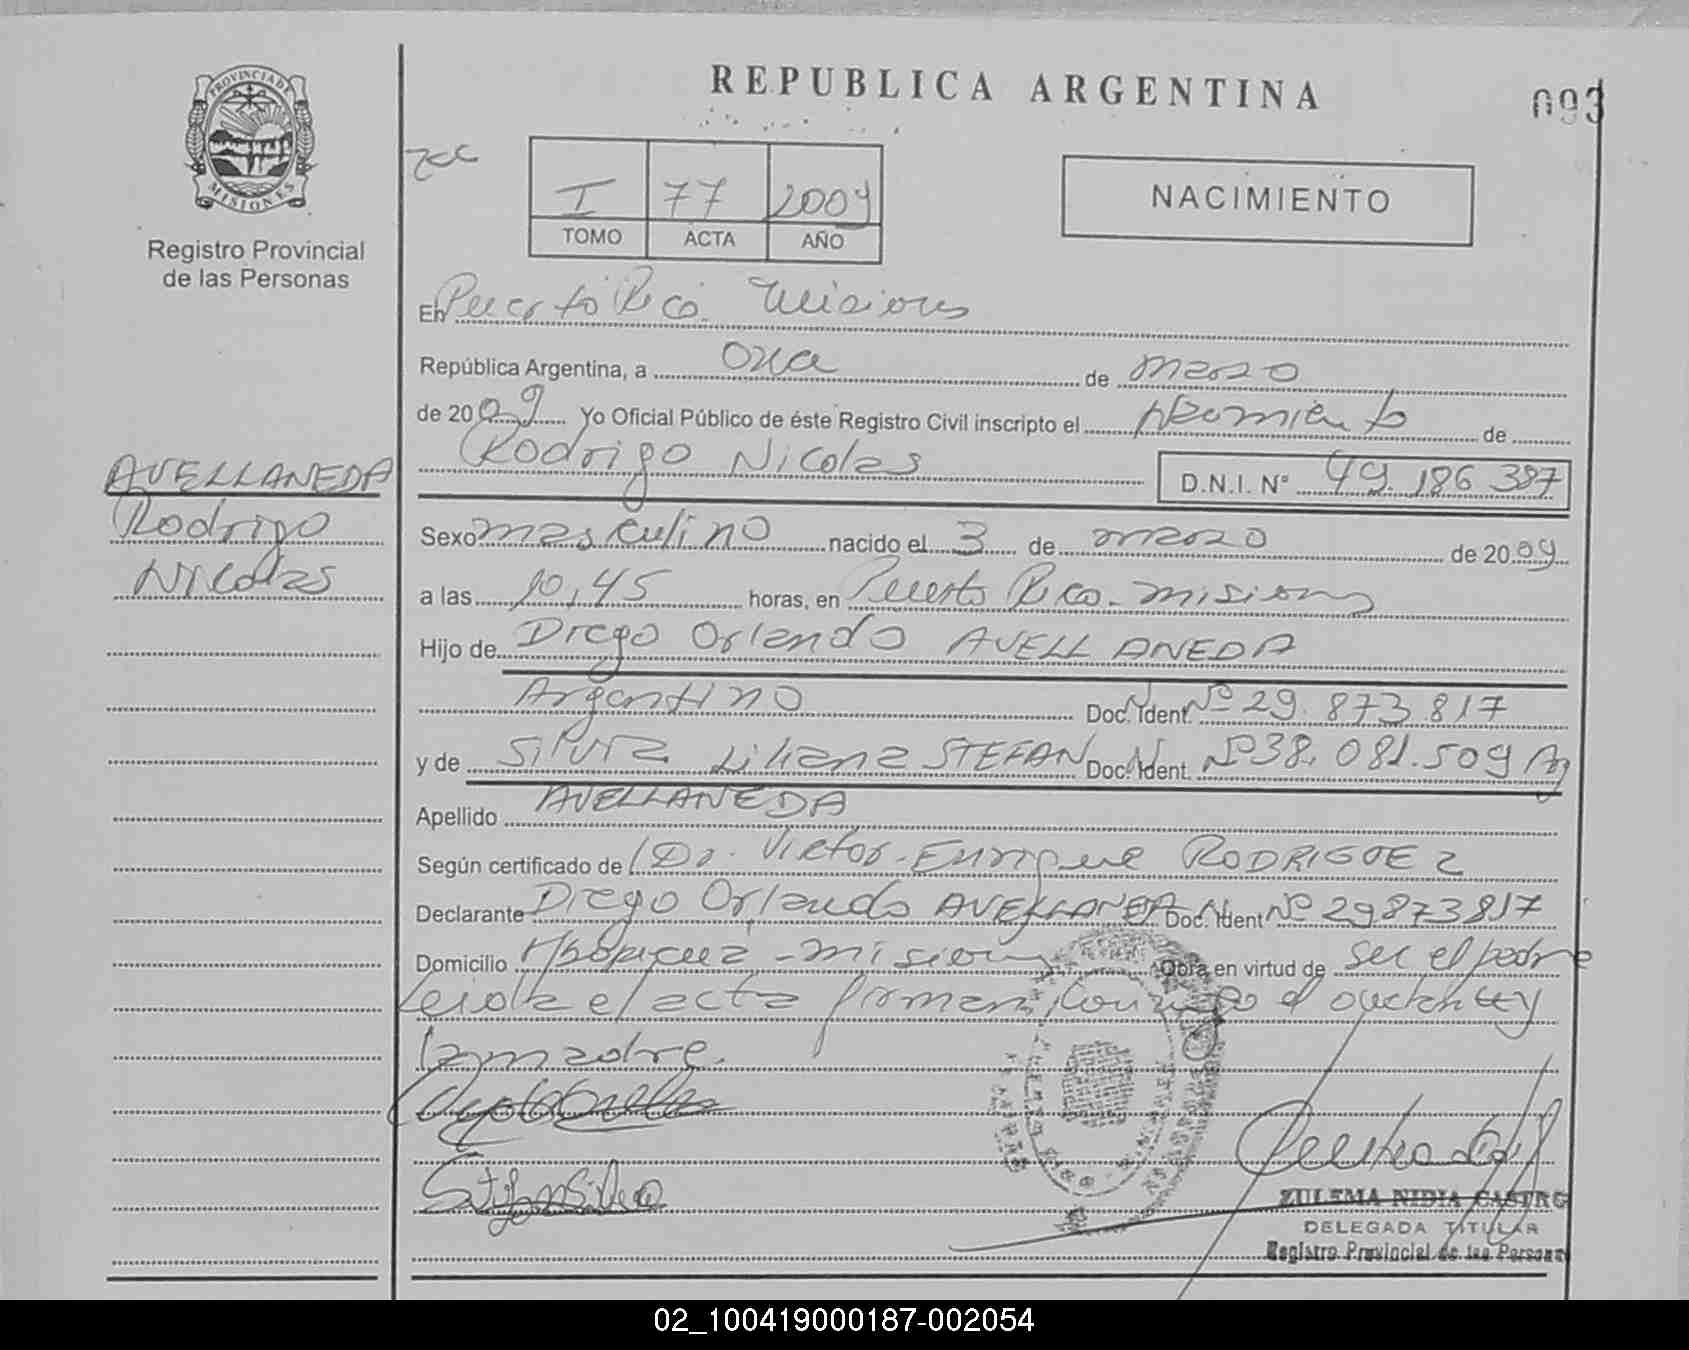 REPUBLICA ARGENTINA
093
PROVINCIA DE
MISIONES
Registro Provincial
de las Personas
I 77 2009
TOMO ACTA AÑO
NACIMIENTO
En Puerto Rico. Misiones
República Argentina, a once de marzo
de 2009 Yo Oficial Público de éste Registro Civil inscripto el nacimiento de
Rodrigo Nicolas D.N.I. N° 49.186.387
AVELLANEDA
Rodrigo
Nicolas
Sexo masculino nacido el 3 de marzo de 2009
a las 10,45 horas, en Puerto Rico - misiones
Hijo de Diego Orlando AVELLANEDA
Argentino Doc. Ident. N° 29.873.817
y de Silvia Liliana STEFAN Doc. Ident. N° 38.081.509 Arg
Apellido AVELLANEDA
Según certificado de Dr. Victor Enrique RODRIGUEZ
Declarante Diego Orlando AVELLANEDA Doc. Ident N° 29873817
Domicilio - misiones Obra en virtud de ser el padre
Leida el acta firman conmigo el y
la madre.
Stefan Silvia
ZULEMA NIDIA CASTRO
DELEGADA TITULAR
Registro Provincial de las Personas
02_100419000187-002054